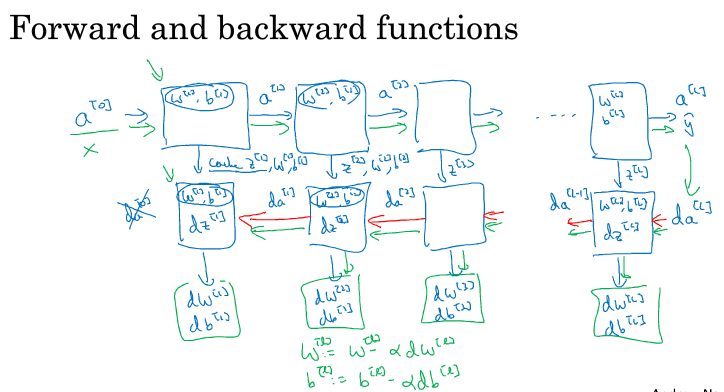 Forward and backward functions
a^[0] x w^[1], b^[1] a^[1] w^[2], b^[2] a^[2] .... w^[L] b^[L] a^[L] ŷ
cache z^[1], w^[1], b^[1] z^[2], w^[2], b^[2] z^[3] z^[L]
da^[0] w^[1], b^[1] dz^[1] da^[1] w^[2], b^[2] dz^[2] da^[2] da^[L-1] w^[L], b^[L] dz^[L] da^[L]
dw^[1] dw^[2] dw^[3] dw^[L]
db^[1] db^[2] db^[3] db^[L]
w^[l] := w^[l] - αdw^[l]
b^[l] := b^[l] - αdb^[l]